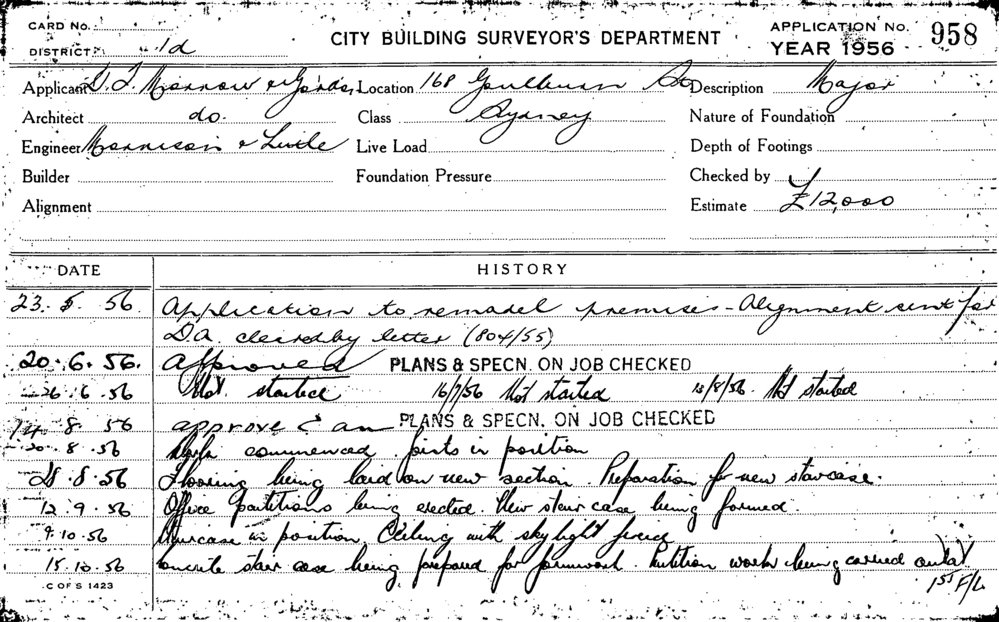 CARD No.
DISTRICT 1d
CITY BUILDING SURVEYOR'S DEPARTMENT
APPLICATION No. 958
YEAR 1956
Applicant D. T. Morrow & Gordon Location 168 Goulburn St Description Major
Architect do. Class Sydney Nature of Foundation
Engineer Morrison & Little Live Load Depth of Footings
Builder Foundation Pressure Checked by
Alignment Estimate £12,000
DATE HISTORY
23. 5. 56 Application to remodel premises - Alignment sent for
D.A. cleared by letter (804/55)
20. 6. 56. Approved PLANS & SPECN. ON JOB CHECKED
26. 6. 56 Not started 16/7/56 Not started 13/8/56. Not started
14. 8. 56 approve PLANS & SPECN. ON JOB CHECKED
20. 8. 56 Work commenced joists in position
28. 8. 56 Flooring being laid on new section. Preparation for new staircase.
12. 9. 56 Office partitions being erected. New stair case being formed.
9. 10. 56 Staircase in position. Ceiling with skylight fixed
15. 10. 56 concrete stair case being prepared for formwork. Partition work being carried out at
1ST F/L
C OF S 1423